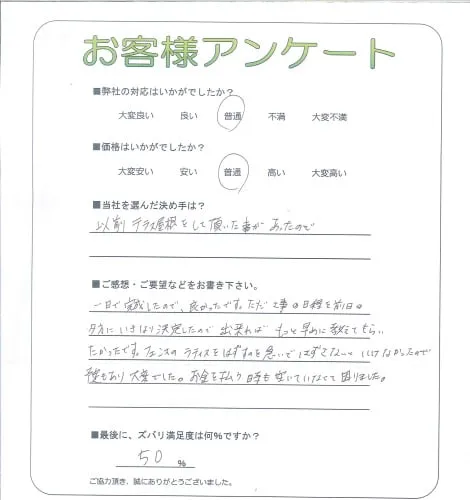 お客様アンケート
■弊社の対応はいかがでしたか?
大変良い 良い 普通 不満 大変不満
■価格はいかがでしたか?
大変安い 安い 普通 高い 大変高い
■当社を選んだ決め手は?
以前 テラス屋根をして頂いた事が あったので
■ご感想・ご要望などをお書き下さい。
一日で完成したので、良かったです。ただ 工事の日程を前日の
夕方に いきなり決定したので 出来れば もっと早めに 教えてもらい
たかったです。フェンスの ラティスをはずすのを急いではずさないと いけなかったので
もあり 大変でした。お金を払う日時も 空いていなくて 困りました。
■最後に、ズバリ満足度は何%ですか?
50 %
ご協力頂き、誠にありがとうございました。